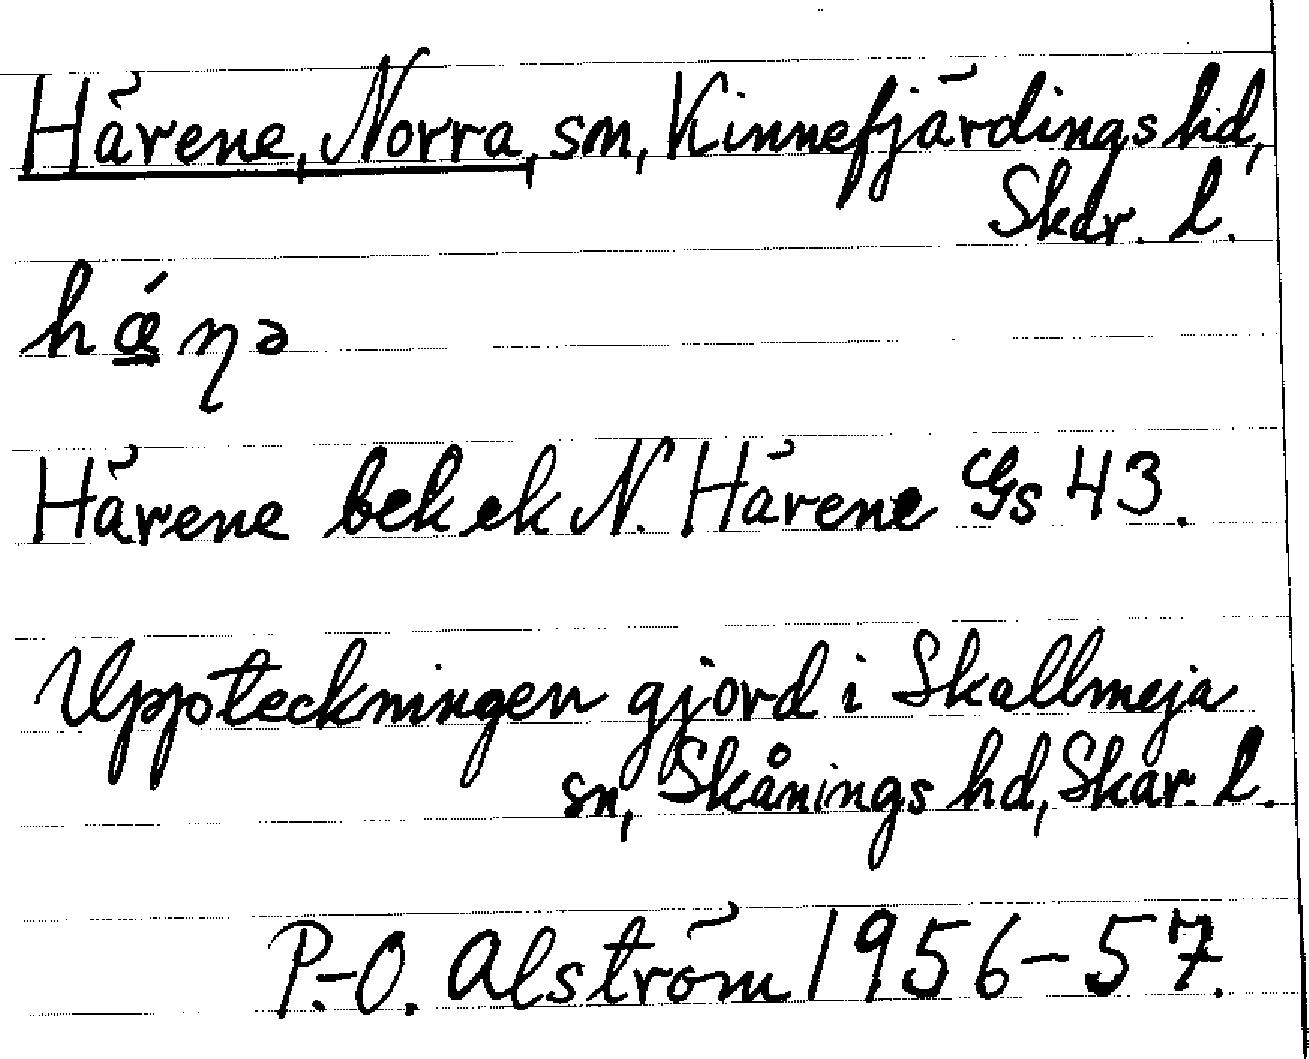 Härene, Norra, sn, Kinnefjärdings hd,
Skar. l.
hǽ̲ɳə
Härene bek ek N. Härene Gs 43.
Uppteckningen gjord i Skallmeja
sn, Skånings hd, Skar. l.
P.-O. Alström 1956-57.